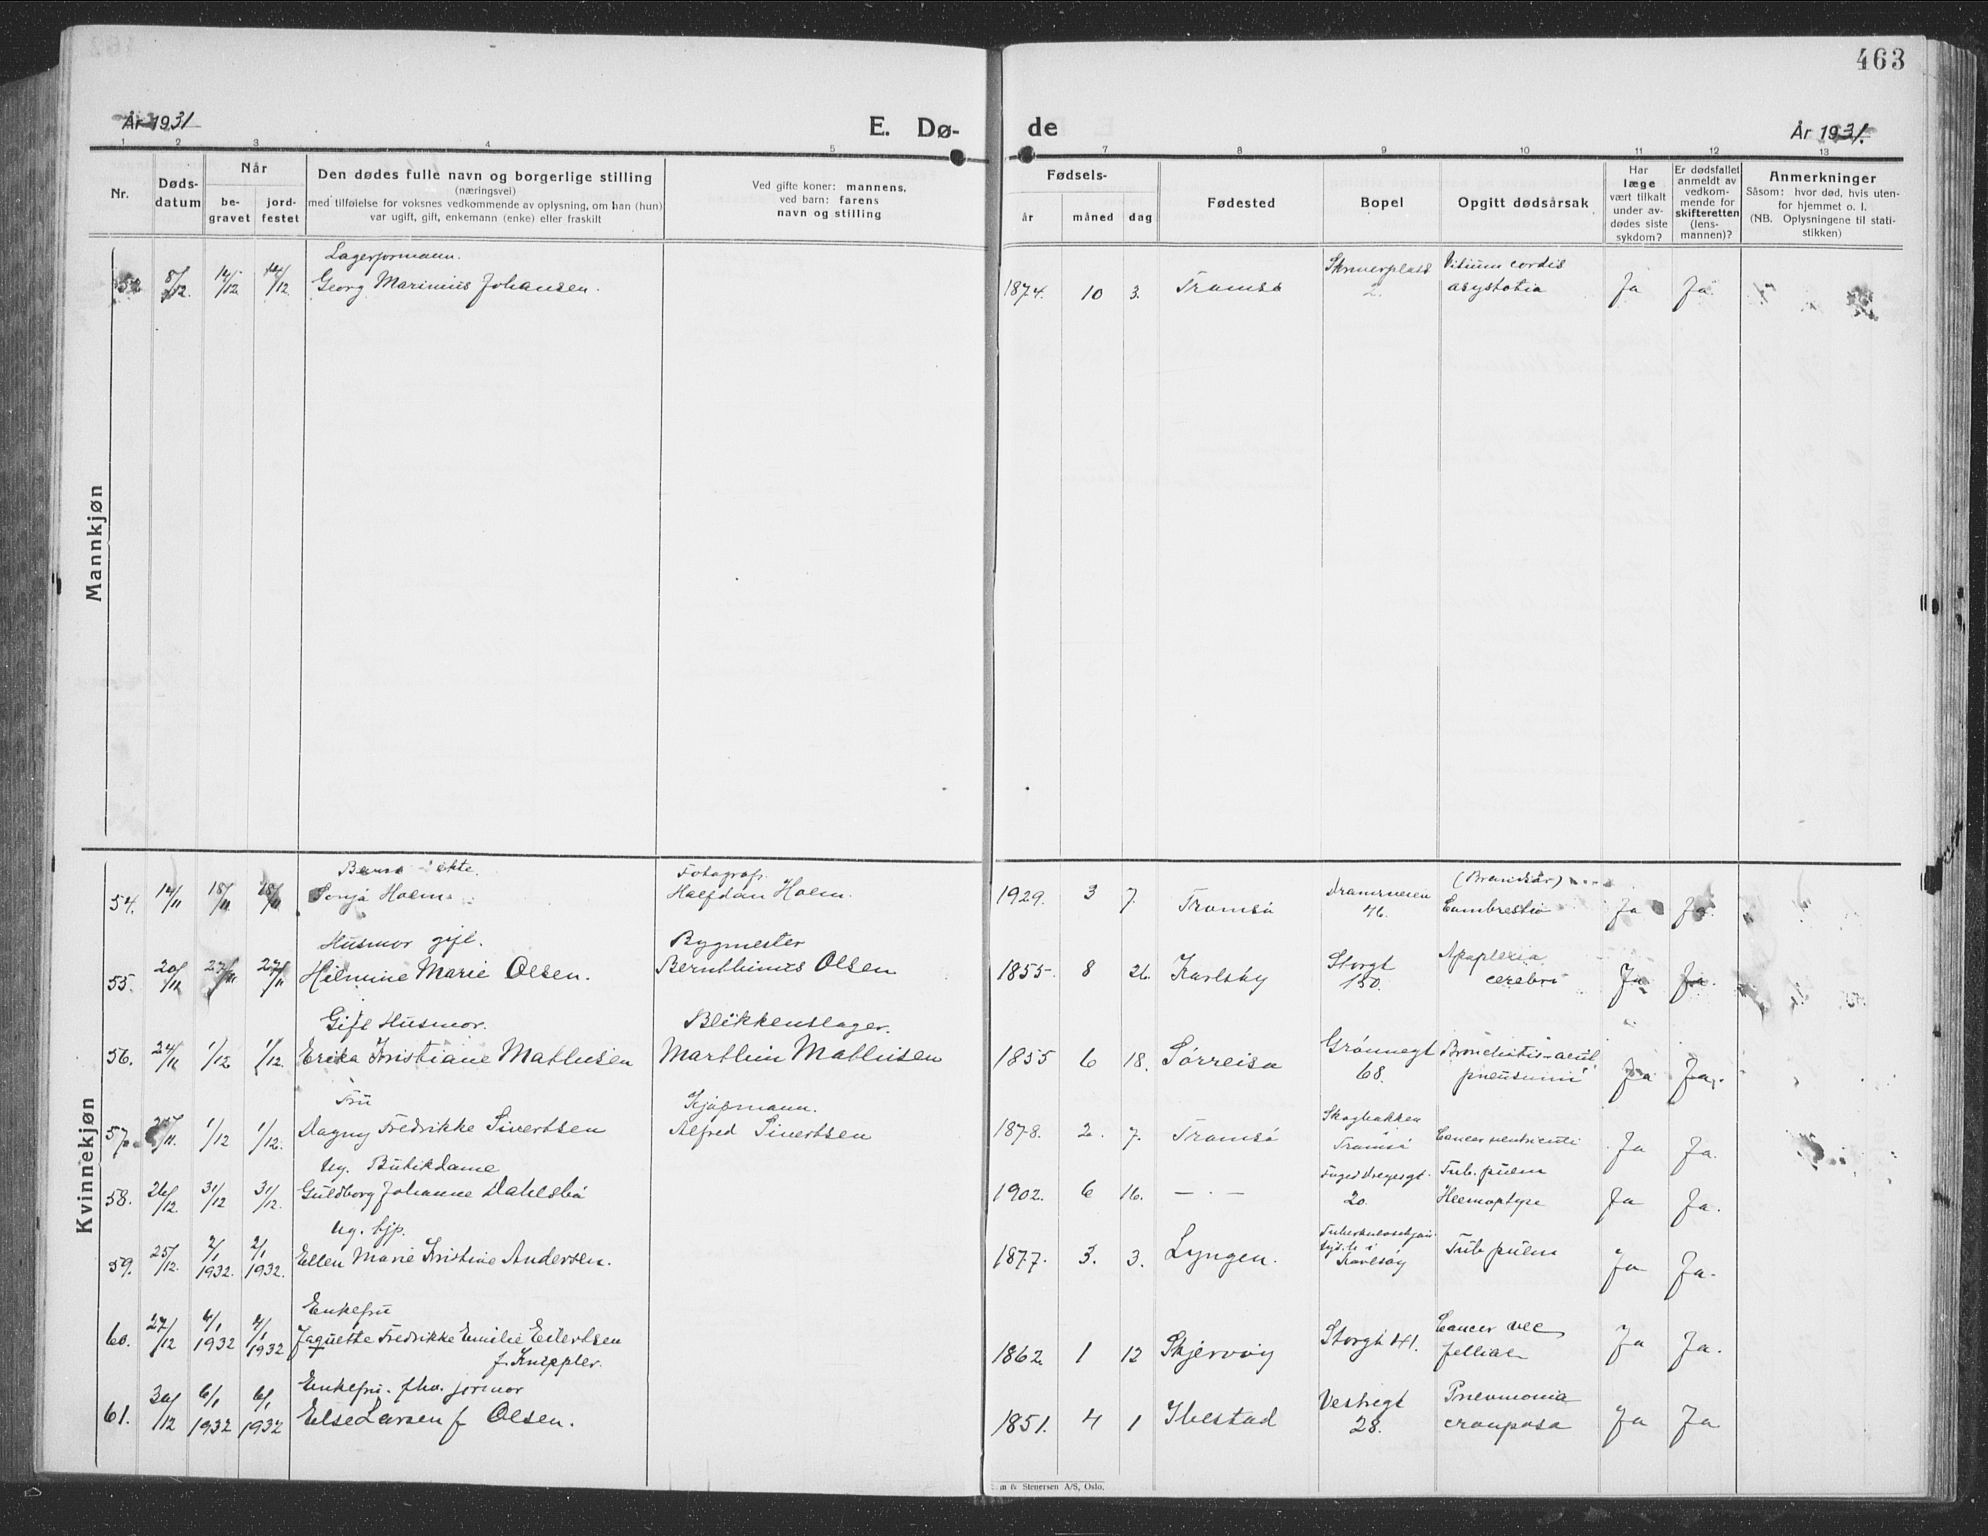 463
År 1931
E. Dø-
de
År 1931.
1 2 3 4 5 7 8 9 10 11 12 13
Nr.
Døds-
datum
Når
be-
gravet
jord-
festet
Den dødes fulle navn og borgerlige stilling
(næringsvei)
med tilføielse for voksnes vedkommende av oplysning, om han (hun)
var ugift, gift, enkemann (enke) eller fraskilt
Ved gifte koner: mannens,
ved barn: farens
navn og stilling
Fødsels-
år måned dag
Fødested
Bopel
Opgitt dødsårsak
Har
læge
vært tilkalt
under av-
dødes siste
sykdom?
Er dødsfallet
anmeldt av
vedkom-
mende for
skifteretten
(lens-
mannen)?
Anmerkninger
Såsom: hvor død, hvis uten-
for hjemmet o. l.
(NB. Oplysningene til stati-
stikken)
Mannkjøn
Lagerformann.
8/12. 14/12 14/12 Georg Marinius Johansen. 1874. 10 3. Tromsø 2. Vitium cordis
asystolia Ja Ja
Kvinnekjøn
Barn ekte. Fotograf.
54. 14/11 18/11 18/11 Sonja Holm. Halfdan Holm. 1929. 3 7. Tromsø Dramsveien
46. (Brandsår)
Combrestio Ja Ja
Husmor gift. Bygmester
55. 20/11 27/11 27/11 Hilmine Marie Olsen. Bernthinus Olsen 1855. 8 26. Karlsøy Storgt
150. Apoplexia
cerebri Ja Ja.
Gift Husmor. Blikkenslager.
56. 24/11 1/12 1/12. Erika Kristiane Mathisen Marthin Mathisen 1855 6 18. Sørreisa Grønnegt
68. Bronchitis acut
pneumoni Ja Ja.
Fru Kjøpmann.
57. 25/11. 1/12 1/12. Dagny Fredrikke Sivertsen Alfred Sivertsen 1878. 2. 7. Tromsø Skogbakken
Tromsø Cancer ventriculi Ja Ja.
Ug. Butikdame
58. 26/12. 31/12 31/12. Guldborg Johanne Dahlsbø 1902. 6 16. — · —
20. Tub. pulm
Hæmoptyse Ja Ja.
Ug. hjp.
59. 25/12. 2/1 1932. 2/1 1932. Ellen Marie Kristine Andersen. 1877. 3. 3. Lyngen.
Karlsøy Tub. pulm Ja Ja.
Enkefru
60. 27/12 4/1 1932 4/1 1932 Jaquette Fredrikke Emilie Eilertsen
f. Knippler. 1862. 1 12 Skjervøy Storgt 41. Cancer vec
felliae Ja Ja.
Enkefru. fhv. jormor
61. 30/12 6/1 1932 6/1 1932 Else Larsen f Olsen. 1851. 4 1 Ibestad Vestregt
28. Pneumonia
crouposa Ja Ja
& Stenersen A/S, Oslo.